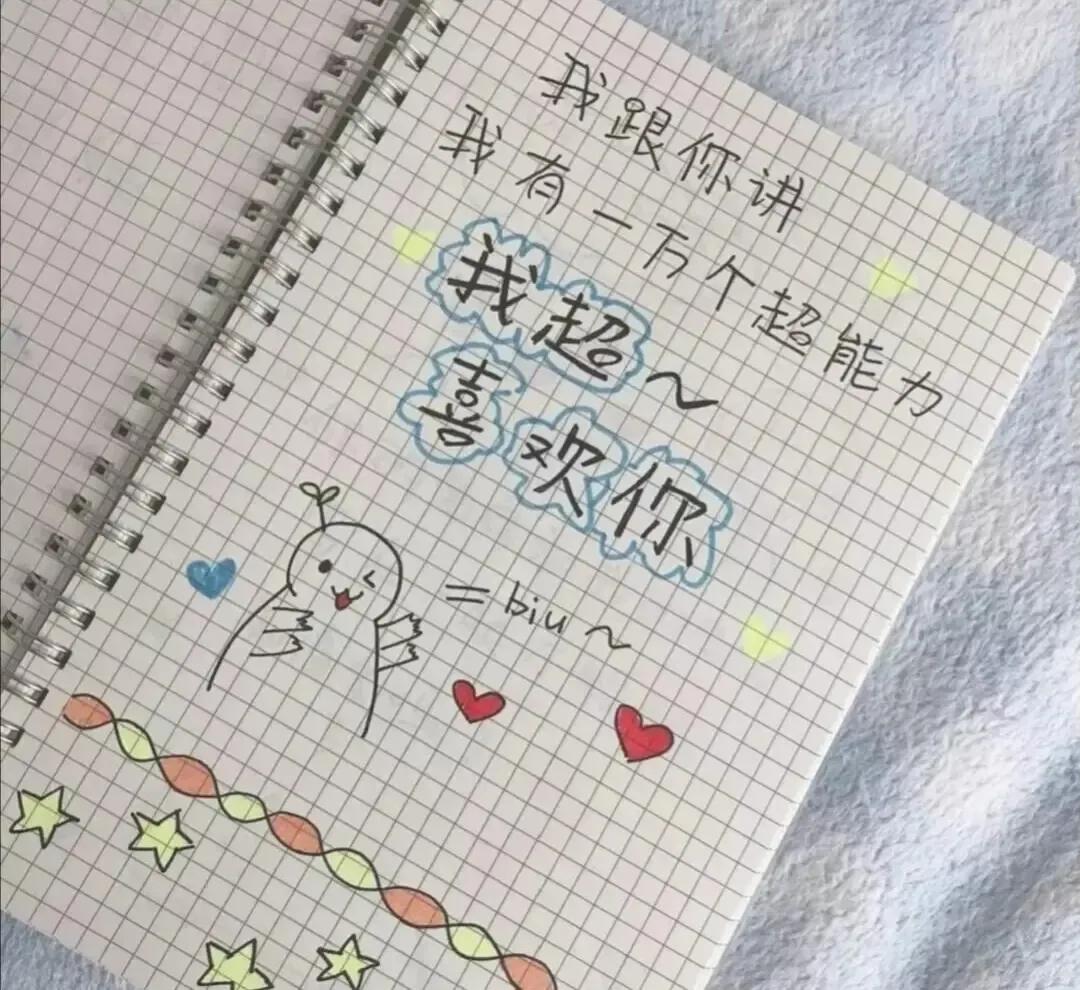 我跟你讲
我有一万个超能力
我超~
喜欢你
=biu~